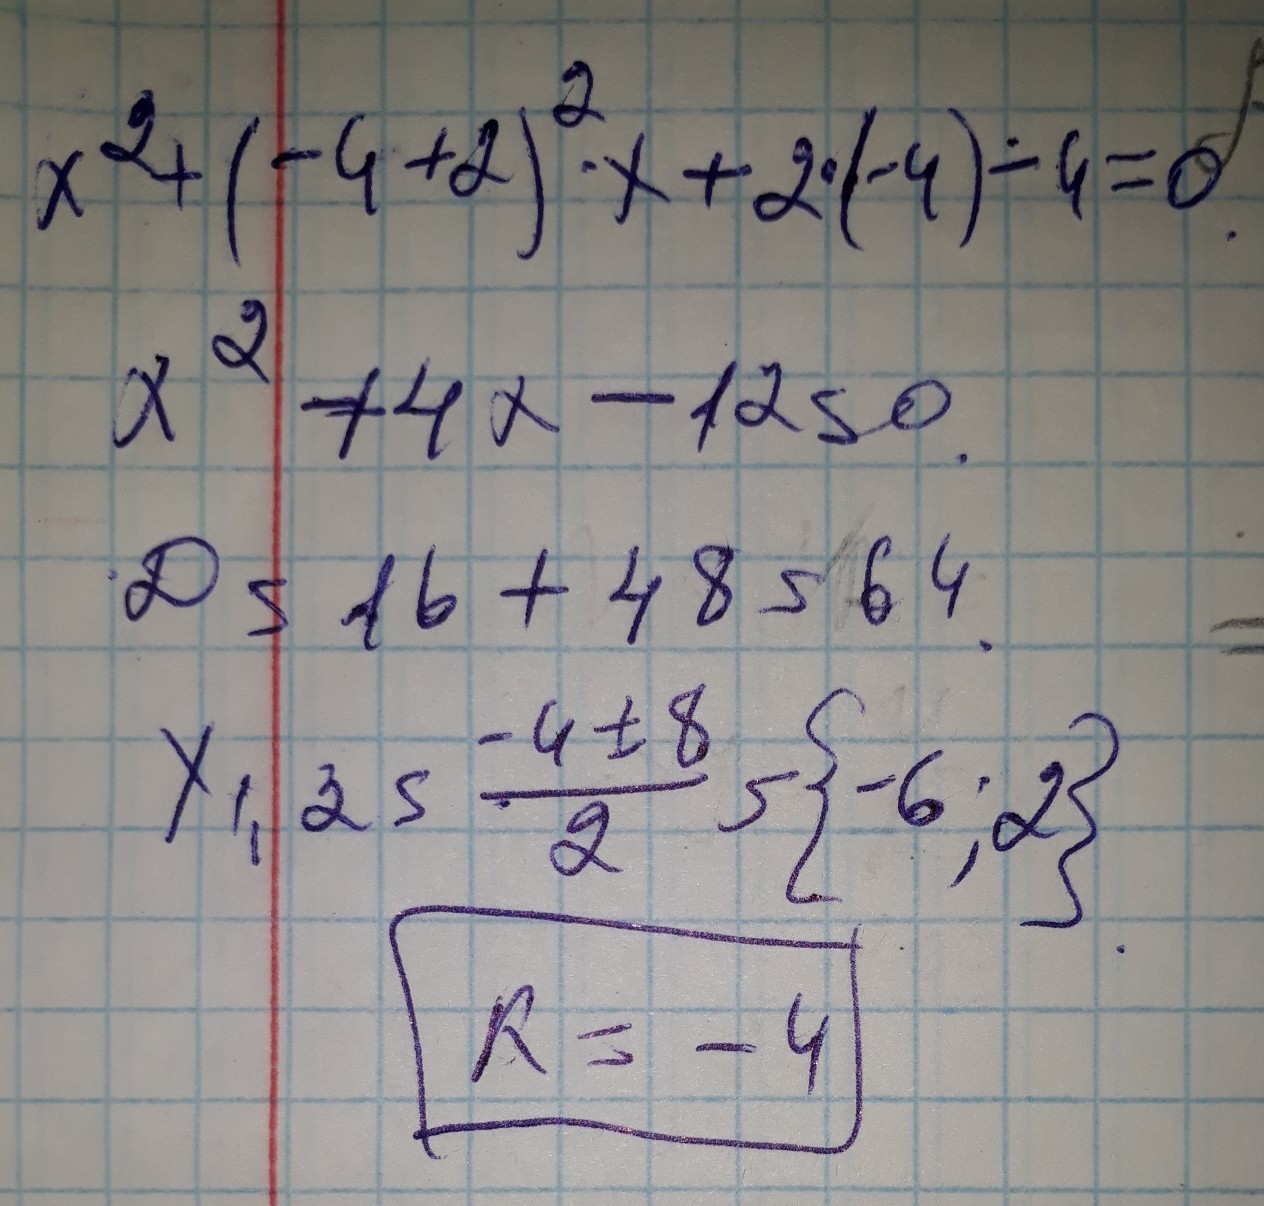 x² + (-4+2)² · x + 2·(-4) - 4 = 0.
x² + 4x - 12 = 0.
D = 16 + 48 = 64.
x₁,₂ = (-4 ± 8)/2 = {-6; 2}.
R = -4